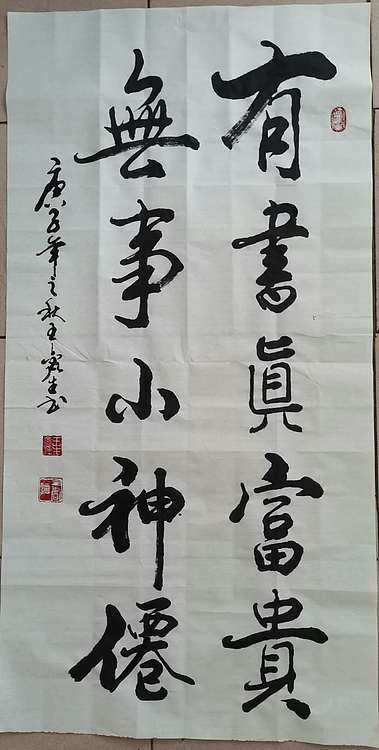 有書眞富貴
無事小神僊
庚子年之秋王生书